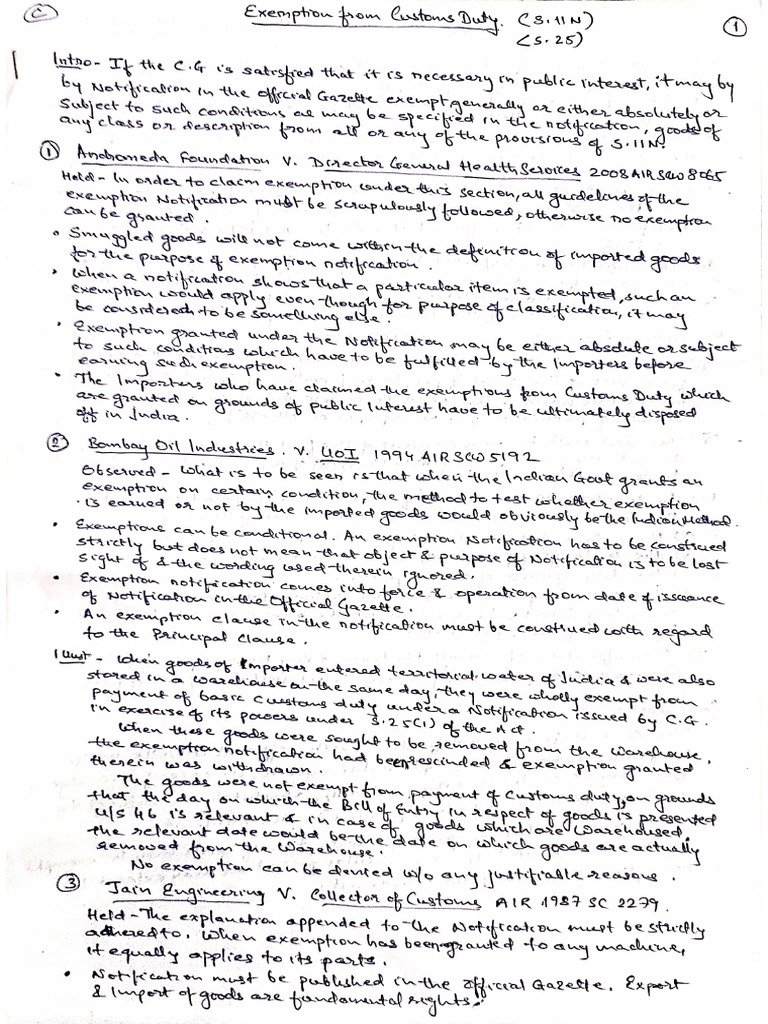 C
Exemption from Customs Duty. (S.11N)
(S.25)
1
Intro - If the C.G is satisfied that it is necessary in public interest, it may by
by Notification in the official Gazette exempt generally or either absolutely or
subject to such conditions as may be specified in the notification, goods of
any class or description from all or any of the provisions of S.11N.
① Andromeda Foundation V. Director General Health Services 2008 AIR SCW 8065
Held - In order to claim exemption under this section, all guidelines of the
exemption Notification must be scrupulously followed, otherwise no exemption
can be granted.
• Smuggled goods will not come within the definition of imported goods
for the purpose of exemption notification.
• When a notification shows that a particular item is exempted, such an
exemption would apply even though for purpose of classification, it may
be considered to be something else.
• Exemption granted under the Notification may be either absolute or subject
to such conditions which have to be fulfilled by the Importers before
earning such exemption.
• The Importers who have claimed the exemptions from Customs Duty which
are granted on grounds of public Interest have to be ultimately disposed
off in India.
② Bombay Oil Industries. V. UOI 1994 AIR SCW 5192
Observed - What is to be seen is that when the Indian Govt grants an
exemption on certain condition, the method to test whether exemption
is earned or not by the imported goods would obviously be the Indian Method.
• Exemptions can be conditional. An exemption Notification has to be construed
strictly but does not mean that object & purpose of Notification is to be lost
sight of & the wording used therein ignored.
• Exemption notification comes into force & operation from date of issuance
of Notification in the Official Gazette.
• An exemption clause in the notification must be construed with regard
to the Principal clause.
Illust - When goods of Importer entered territorial water of India & were also
stored in a warehouse on the same day, they were wholly exempt from
payment of basic customs duty under a Notification issued by C.G.
in exercise of its powers under S.25(1) of the Act.
When these goods were sought to be removed from the warehouse,
the exemption notification had been rescinded & exemption granted
therein was withdrawn.
The goods were not exempt from payment of Customs duty, on grounds
that the day on which the Bill of Entry in respect of goods is presented
u/s 46 is relevant & in case of goods which are warehoused,
the relevant date would be the date on which goods are actually
removed from the Warehouse.
No exemption can be denied w/o any justifiable reasons.
③ Jain Engineering V. Collector of Customs AIR 1987 SC 2279.
Held - The explanation appended to the Notification must be strictly
adhered to. When exemption has been granted to any machine,
it equally applies to its parts.
• Notification must be published in the official Gazette. Export
& Import of goods are fundamental rights.